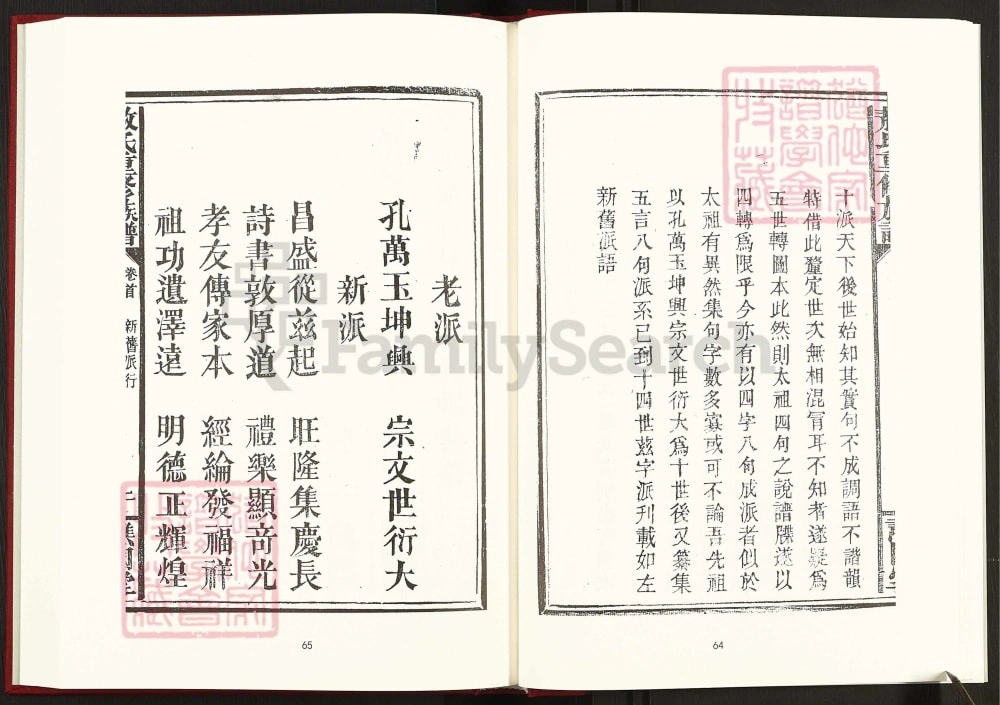 十派天下後世始知其實句不成調語不諧韻
特借此釐定世次無相混冐耳不知者遂疑爲
五世轉圖本此然則太祖四句之說譜牒遂以
四轉爲限乎今亦有以四字八句成派者似於
太祖有異然集句字數多寡或可不論吾先祖
以孔萬玉坤興宗文世衍大爲十世後又纂集
五言八句派系已到十四世茲字派刊載如左
新舊派語
64
老派
孔萬玉坤興 宗文世衍大
新派
昌盛從茲起 旺隆集慶長
詩書敦厚道 禮樂顯奇光
孝友傳家本 經綸發福祥
祖功遺澤遠 明德正輝煌
氏重修族譜 卷首 新舊派行
65
FamilySearch